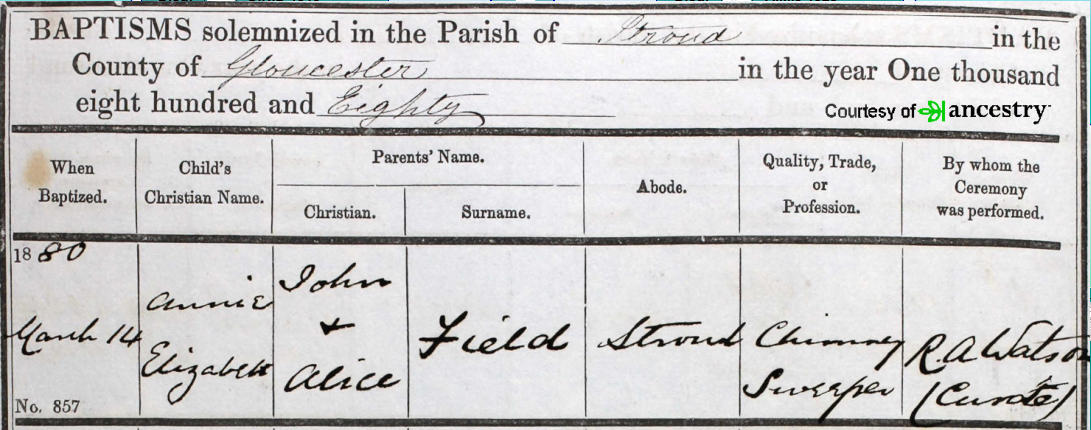 BAPTISMS solemnized in the Parish of Stroud in the
County of Gloucester in the year One thousand
eight hundred and Eighty
Courtesy of ancestry
When Baptized.
Child's Christian Name.
Parents' Name.
Christian.
Surname.
Abode.
Quality, Trade, or Profession.
By whom the Ceremony was performed.
1880
March 14
No. 857
Annie
Elizabeth
John
+
Alice
Field
Stroud
Chimney
Sweeper
R A Watson
(Curate)